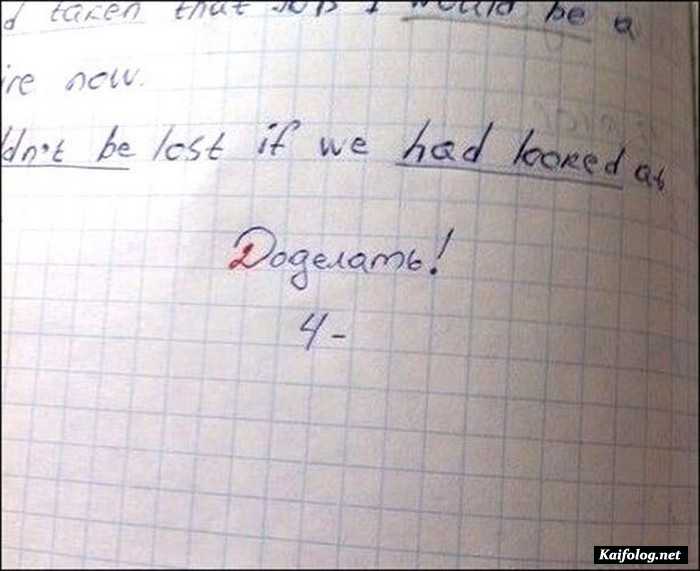 d taken that job I would be a
ire now.
ldn't be lost if we had looked at
Доделать!
4-
Kaifolog.net